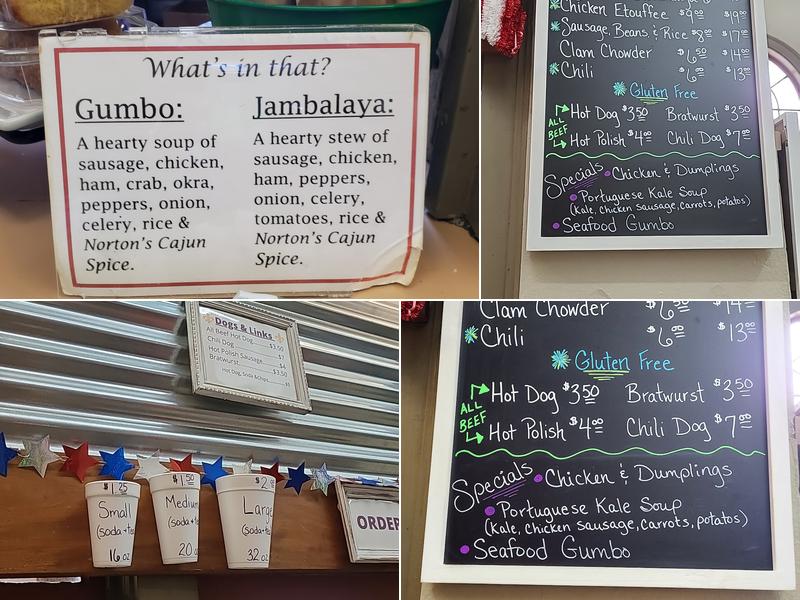 What's in that?
Gumbo:
A hearty soup of
sausage, chicken,
ham, crab, okra,
peppers, onion,
celery, rice &
Norton's Cajun
Spice.
Jambalaya:
A hearty stew of
sausage, chicken,
ham, peppers,
onion, celery,
tomatoes, rice &
Norton's Cajun
Spice.
Chicken Etouffee $9.00 $19
Sausage, Beans & Rice $8 $17
Clam Chowder $6.50 $14
Chili $6.00 $13
Gluten Free
ALL BEEF
Hot Dog $3.50 Bratwurst $3.50
Hot Polish $4.00 Chili Dog $7.00
Specials
Chicken & Dumplings
Portuguese Kale Soup
(Kale, chicken sausage, carrots, potatos)
Seafood Gumbo
Dogs & Links
All Beef Hot Dog......$3.50
Chili Dog......$7
Hot Polish Sausage......$4
Bratwurst......$3.50
Hot Dog, Soda & Chips
$1.25
Small
(soda+te
16 oz
$1.50
Medium
(soda+te
20 oz
$2
Large
(soda+te
32 oz
ORDER
Clam Chowder $6.50 $14
Chili $6.00 $13.00
Gluten Free
ALL BEEF
Hot Dog $3.50 Bratwurst $3.50
Hot Polish $4.00 Chili Dog $7.00
Specials
Chicken & Dumplings
Portuguese Kale Soup
(Kale, chicken sausage, carrots, potatos)
Seafood Gumbo